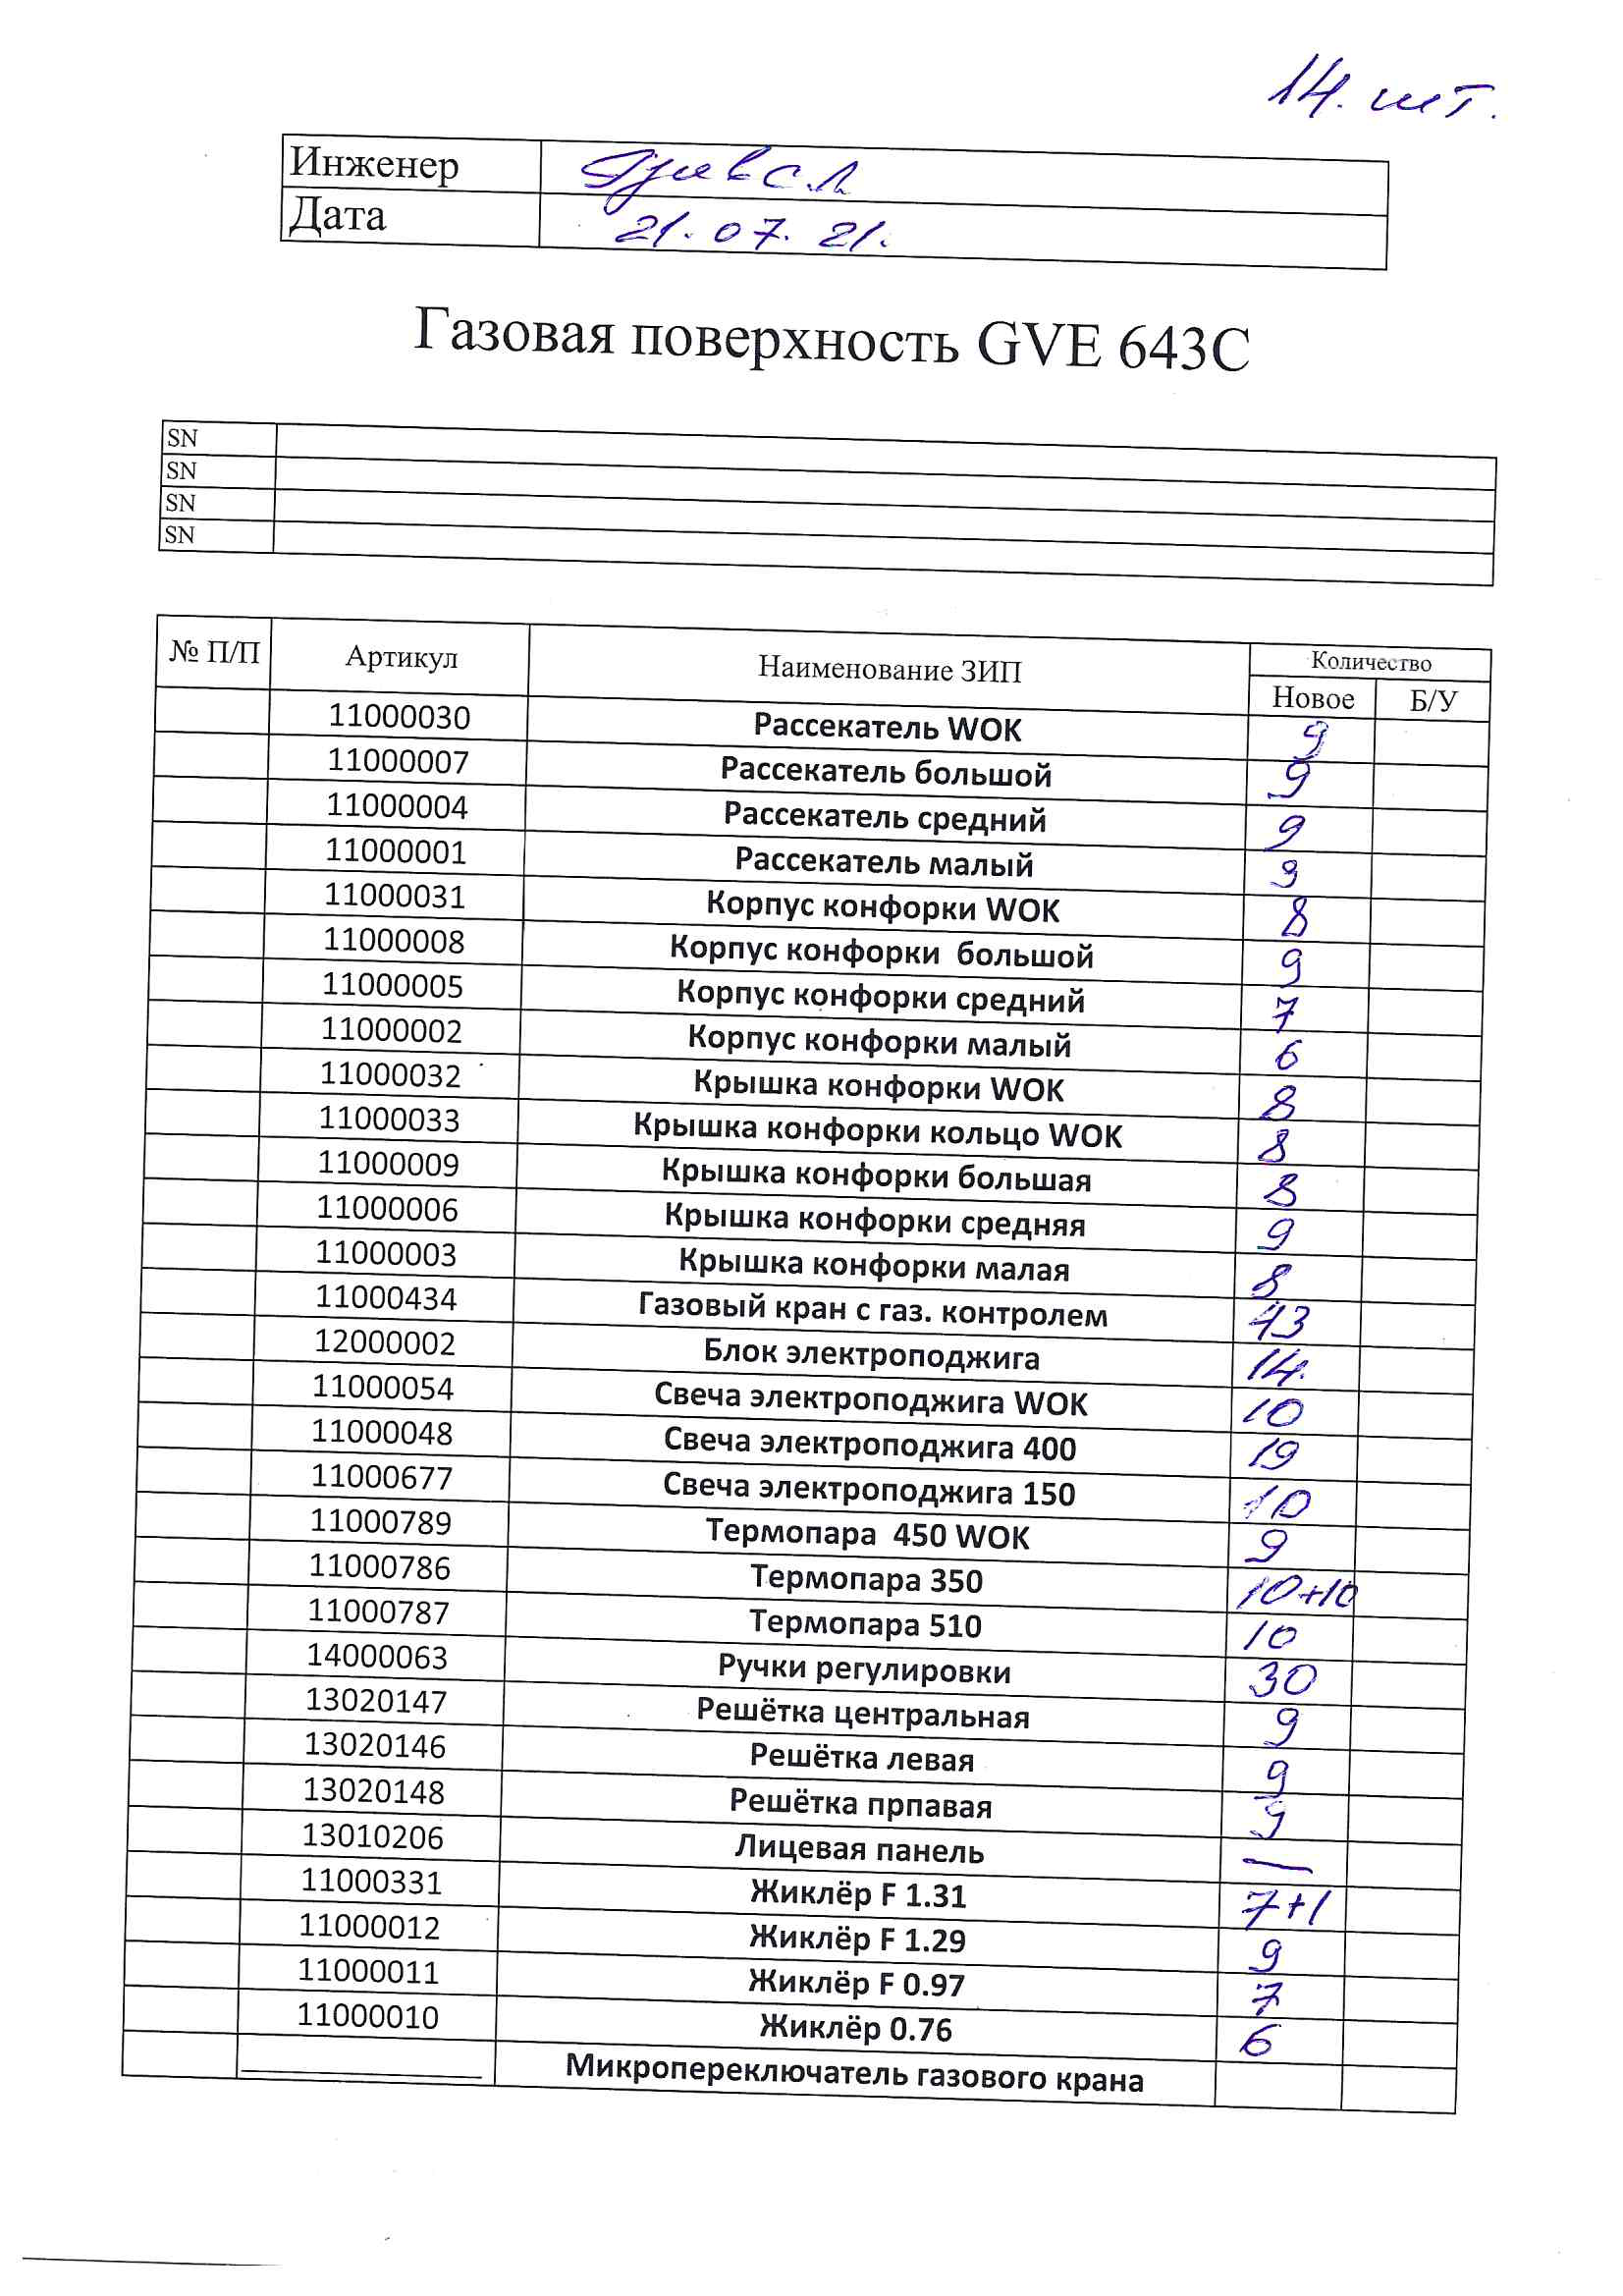 14. шт.
Инженер
Дата 21.07.21.
Газовая поверхность GVE 643C
SN
SN
SN
SN
№ П/П Артикул Наименование ЗИП Количество
Новое Б/У
11000030 Рассекатель WOK 9
11000007 Рассекатель большой 9
11000004 Рассекатель средний 9
11000001 Рассекатель малый 9
11000031 Корпус конфорки WOK 8
11000008 Корпус конфорки большой 9
11000005 Корпус конфорки средний 7
11000002 Корпус конфорки малый 6
11000032 Крышка конфорки WOK 8
11000033 Крышка конфорки кольцо WOK 8
11000009 Крышка конфорки большая 8
11000006 Крышка конфорки средняя 9
11000003 Крышка конфорки малая 8
11000434 Газовый кран с газ. контролем 43
12000002 Блок электроподжига 14.
11000054 Свеча электроподжига WOK 10
11000048 Свеча электроподжига 400 19
11000677 Свеча электроподжига 150 10
11000789 Термопара 450 WOK 9
11000786 Термопара 350 10+10
11000787 Термопара 510 10
14000063 Ручки регулировки 30
13020147 Решётка центральная 9
13020146 Решётка левая 9
13020148 Решётка прпавая 9
13010206 Лицевая панель —
11000331 Жиклёр F 1.31 7+1
11000012 Жиклёр F 1.29 9
11000011 Жиклёр F 0.97 7
11000010 Жиклёр 0.76 6
Микропереключатель газового крана